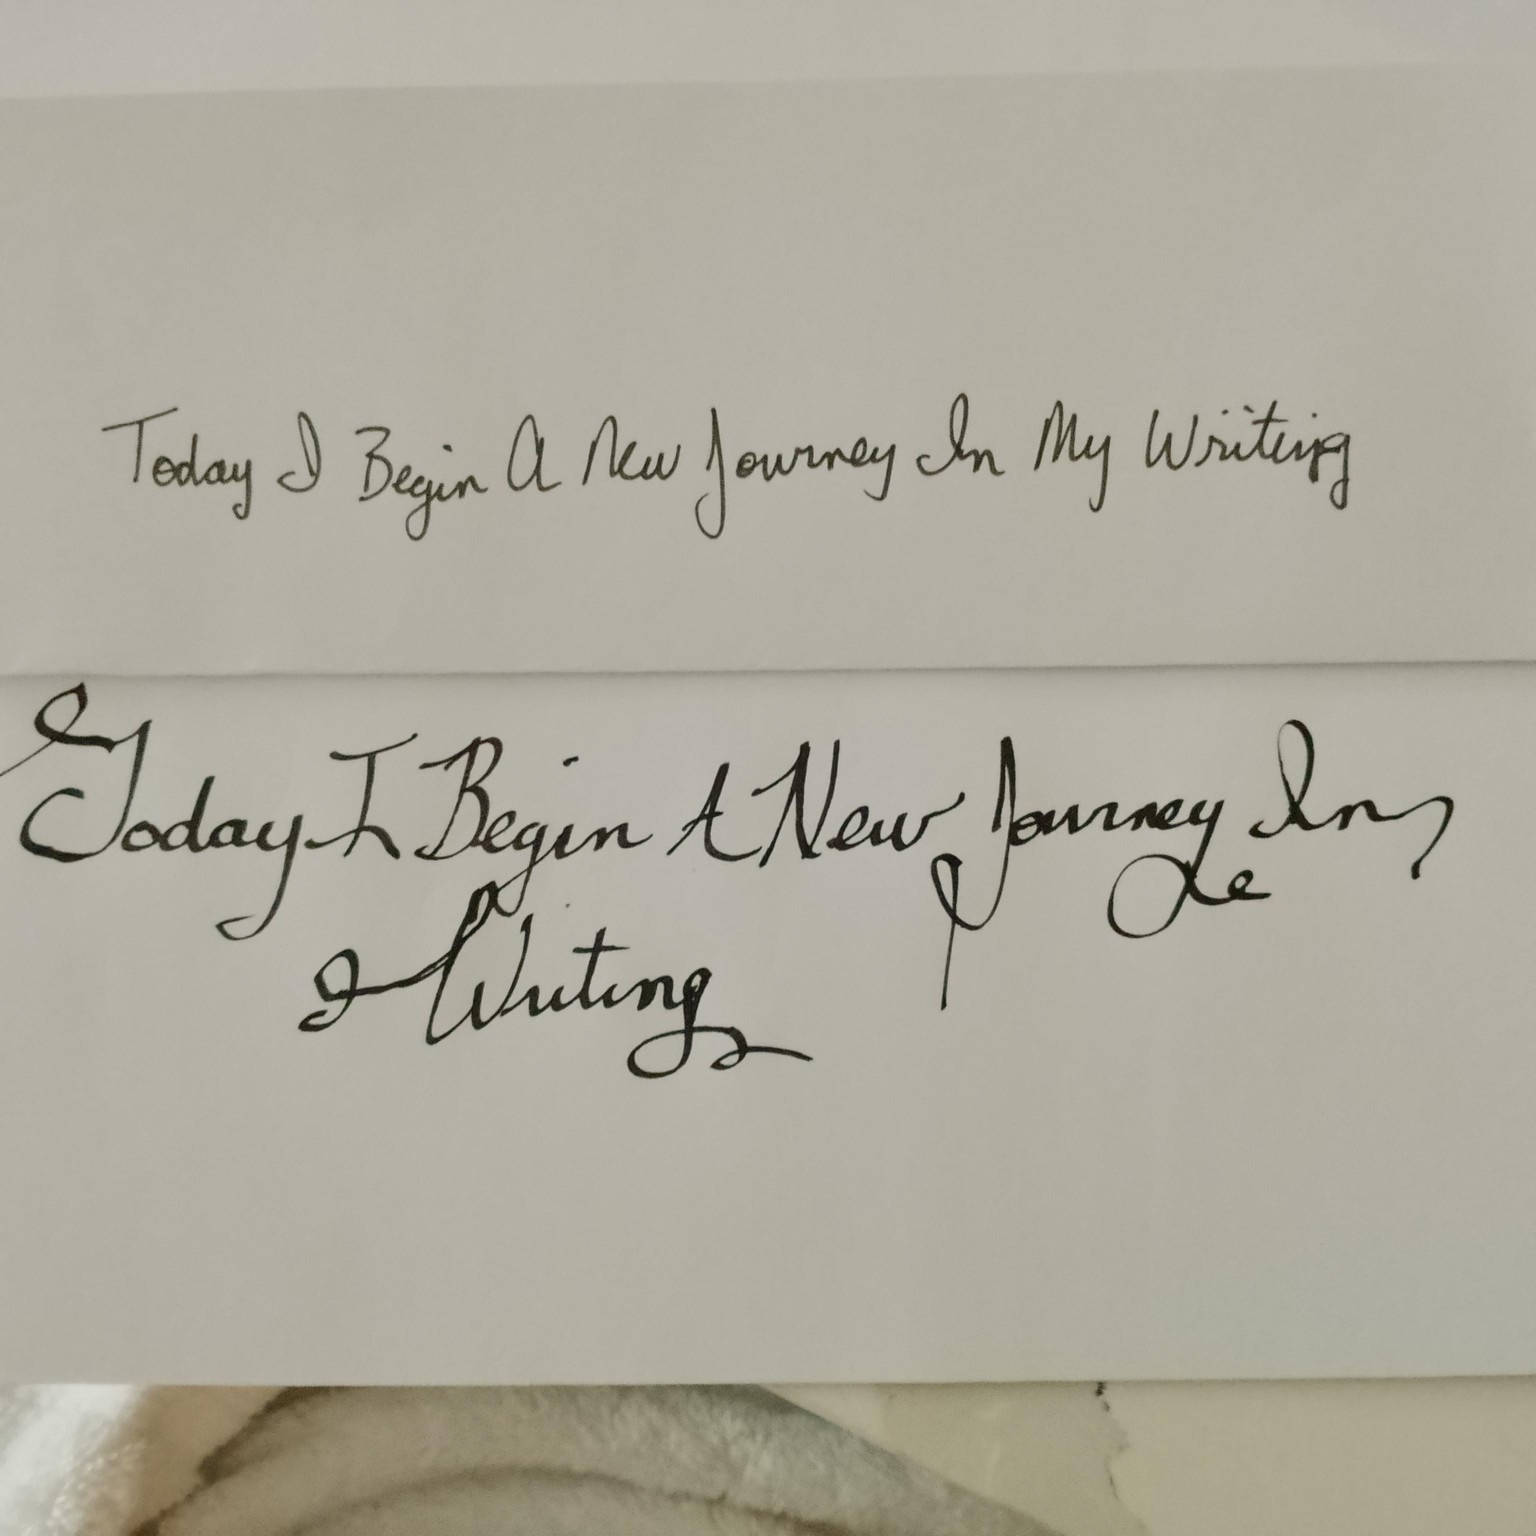 Today I Begin A New Journey In My Writing
Today I Begin A New Journey In
Writing